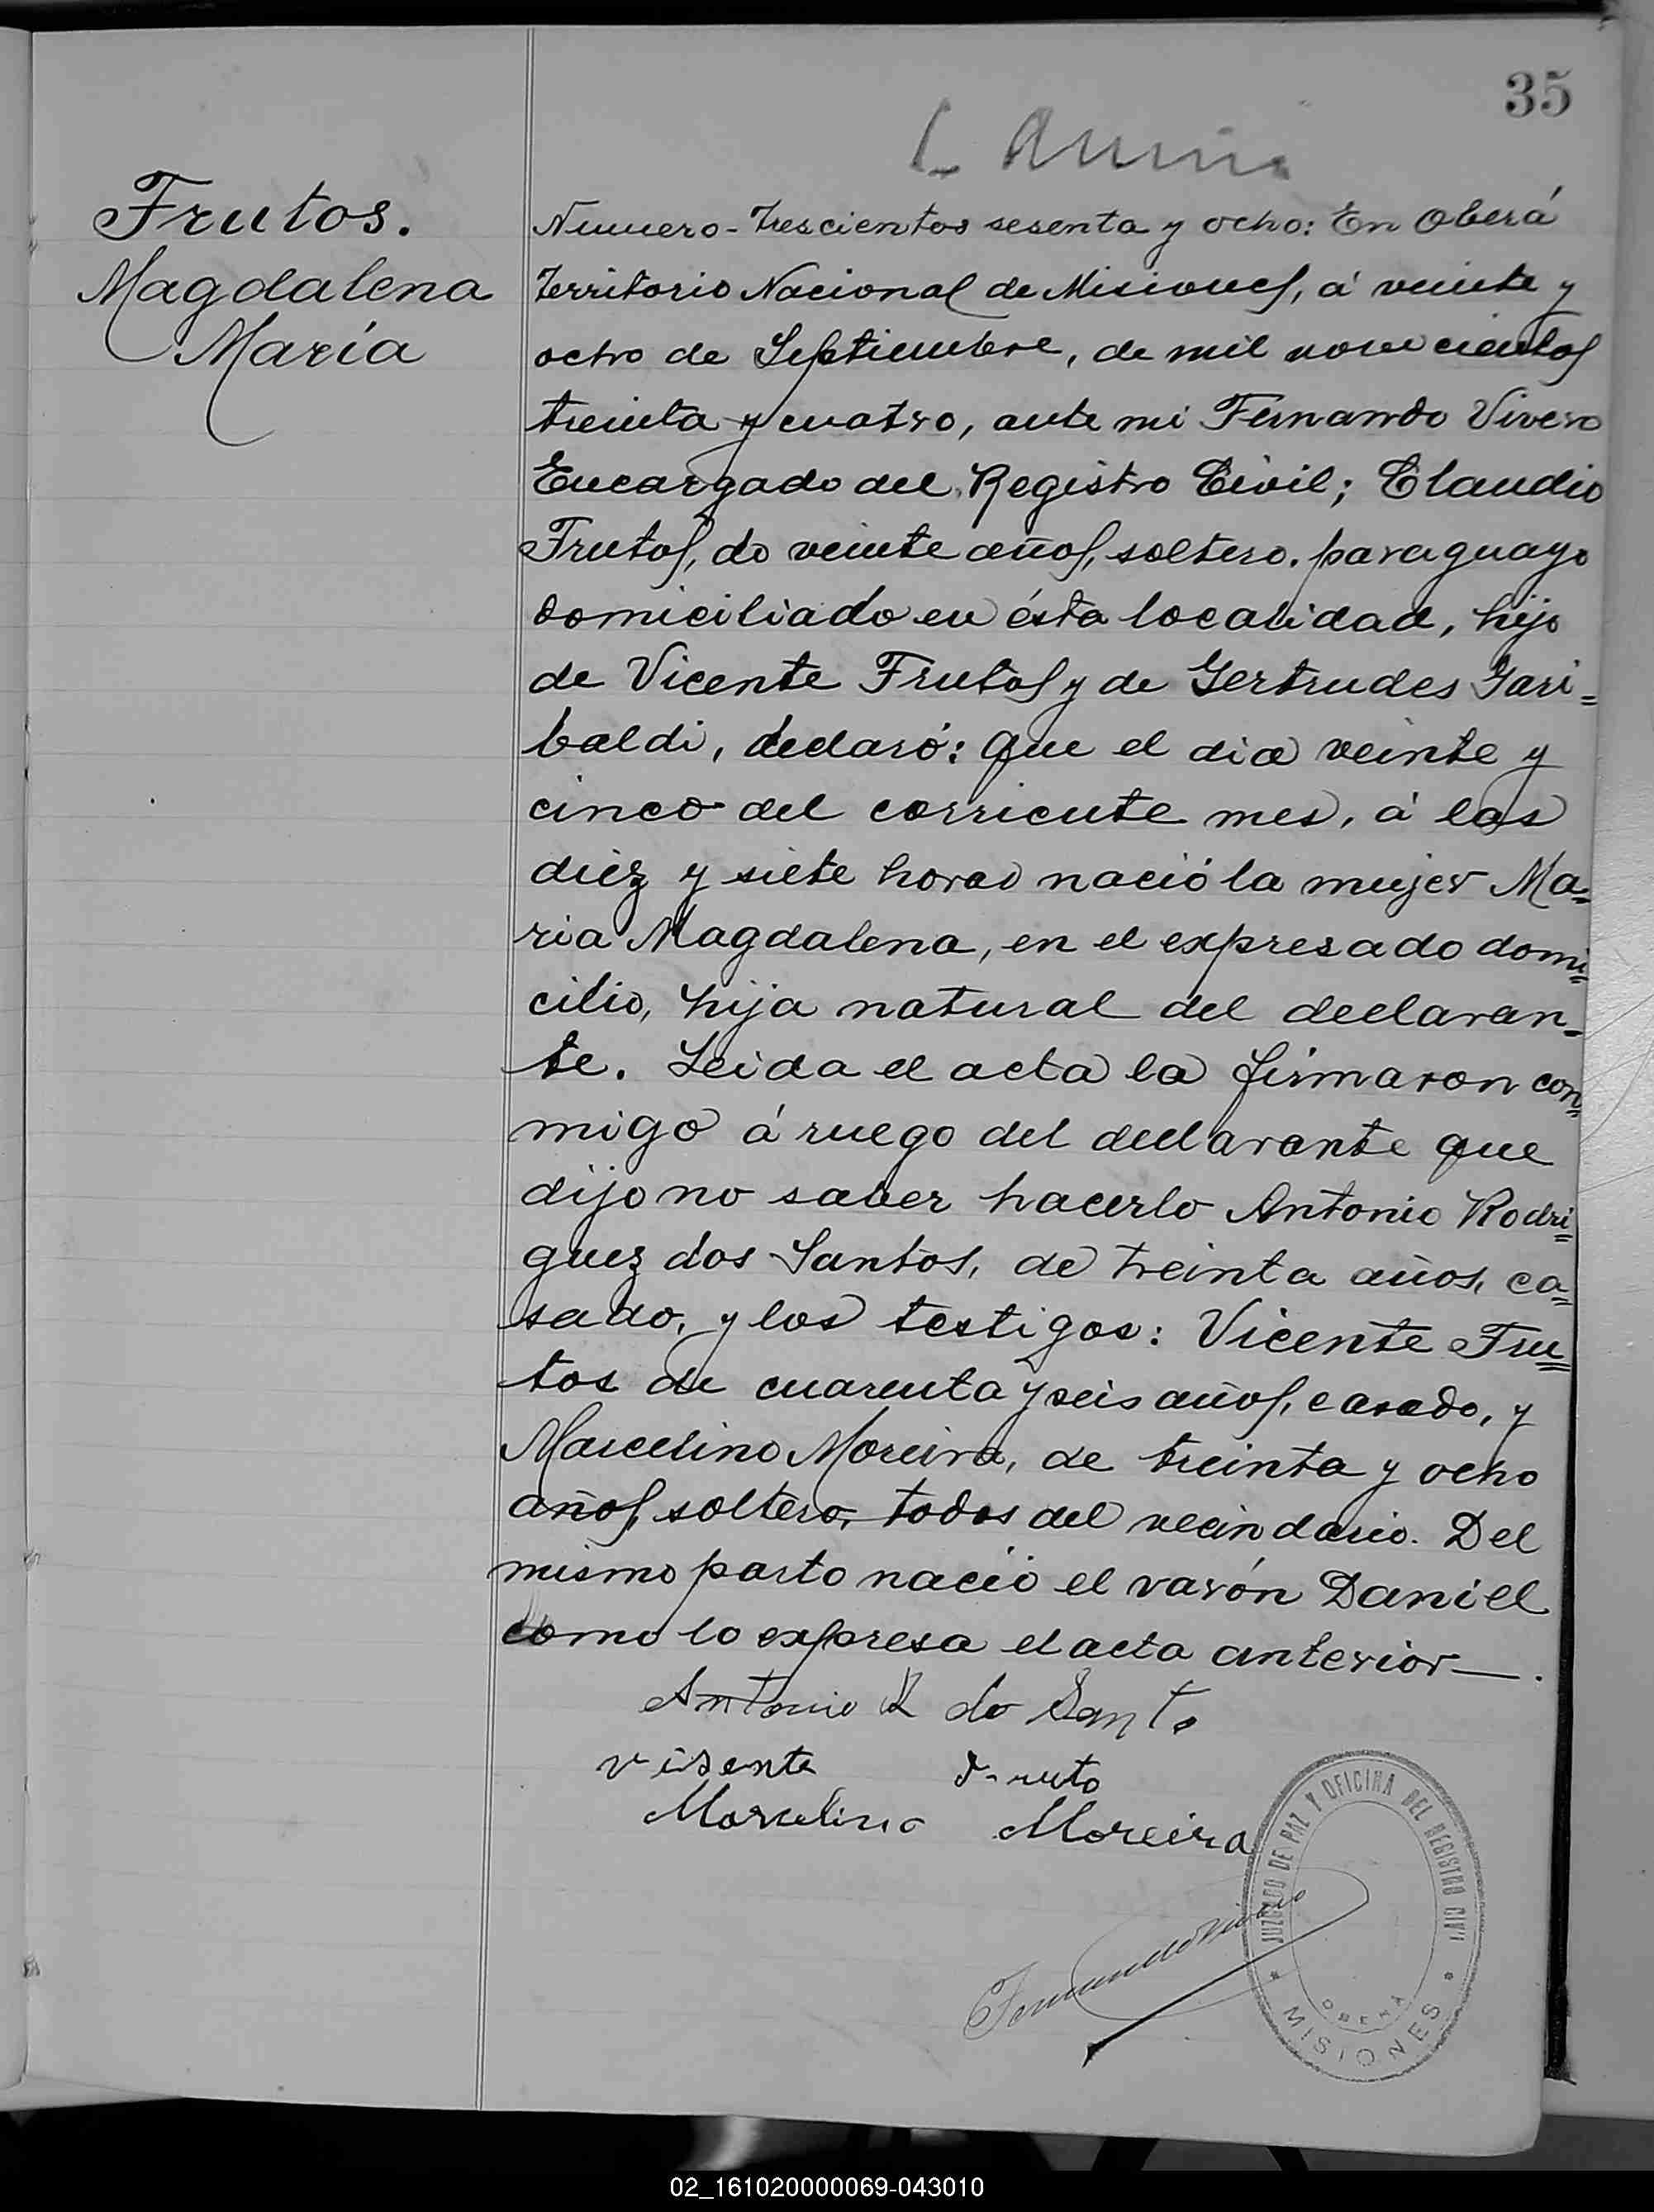 35
Frutos.
Magdalena
María
Numero - Trescientos sesenta y ocho: En Oberá
Territorio Nacional de Misiones, á veinte y
ocho de Septiembre, de mil novecientos
treinta y cuatro, ante mi Fernando Vivero
Encargado del Registro Civil; Claudio
Frutos, de veinte años, soltero. paraguayo
domiciliado en ésta localidad, hijo
de Vicente Frutos y de Gertrudes Gari=
baldi, declaró: Que el dia veinte y
cinco del corriente mes, á las
diez y siete horas nació la mujer Ma=
ria Magdalena, en el expresado domi=
cilio, hija natural del declaran=
te. Leida el acta la firmaron con=
migo á ruego del declarante que
dijo no saber hacerlo Antonio Rodri=
guez dos Santos, de treinta años, ca=
sado, y los testigos: Vicente Fru=
tos de cuarenta y seis años, casado, y
Marcelino Moreira, de treinta y ocho
años, soltero, todos del vecindario. Del
mismo parto nació el varón Daniel
como lo expresa el acta anterior—.
Antonio R do Santo
visente Fruto
Marcelino Moreira
Fernando Vivero
JUZGADO DE PAZ Y OFICINA DEL REGISTRO CIVIL
OBERÁ
* MISIONES *
02_161020000069-043010